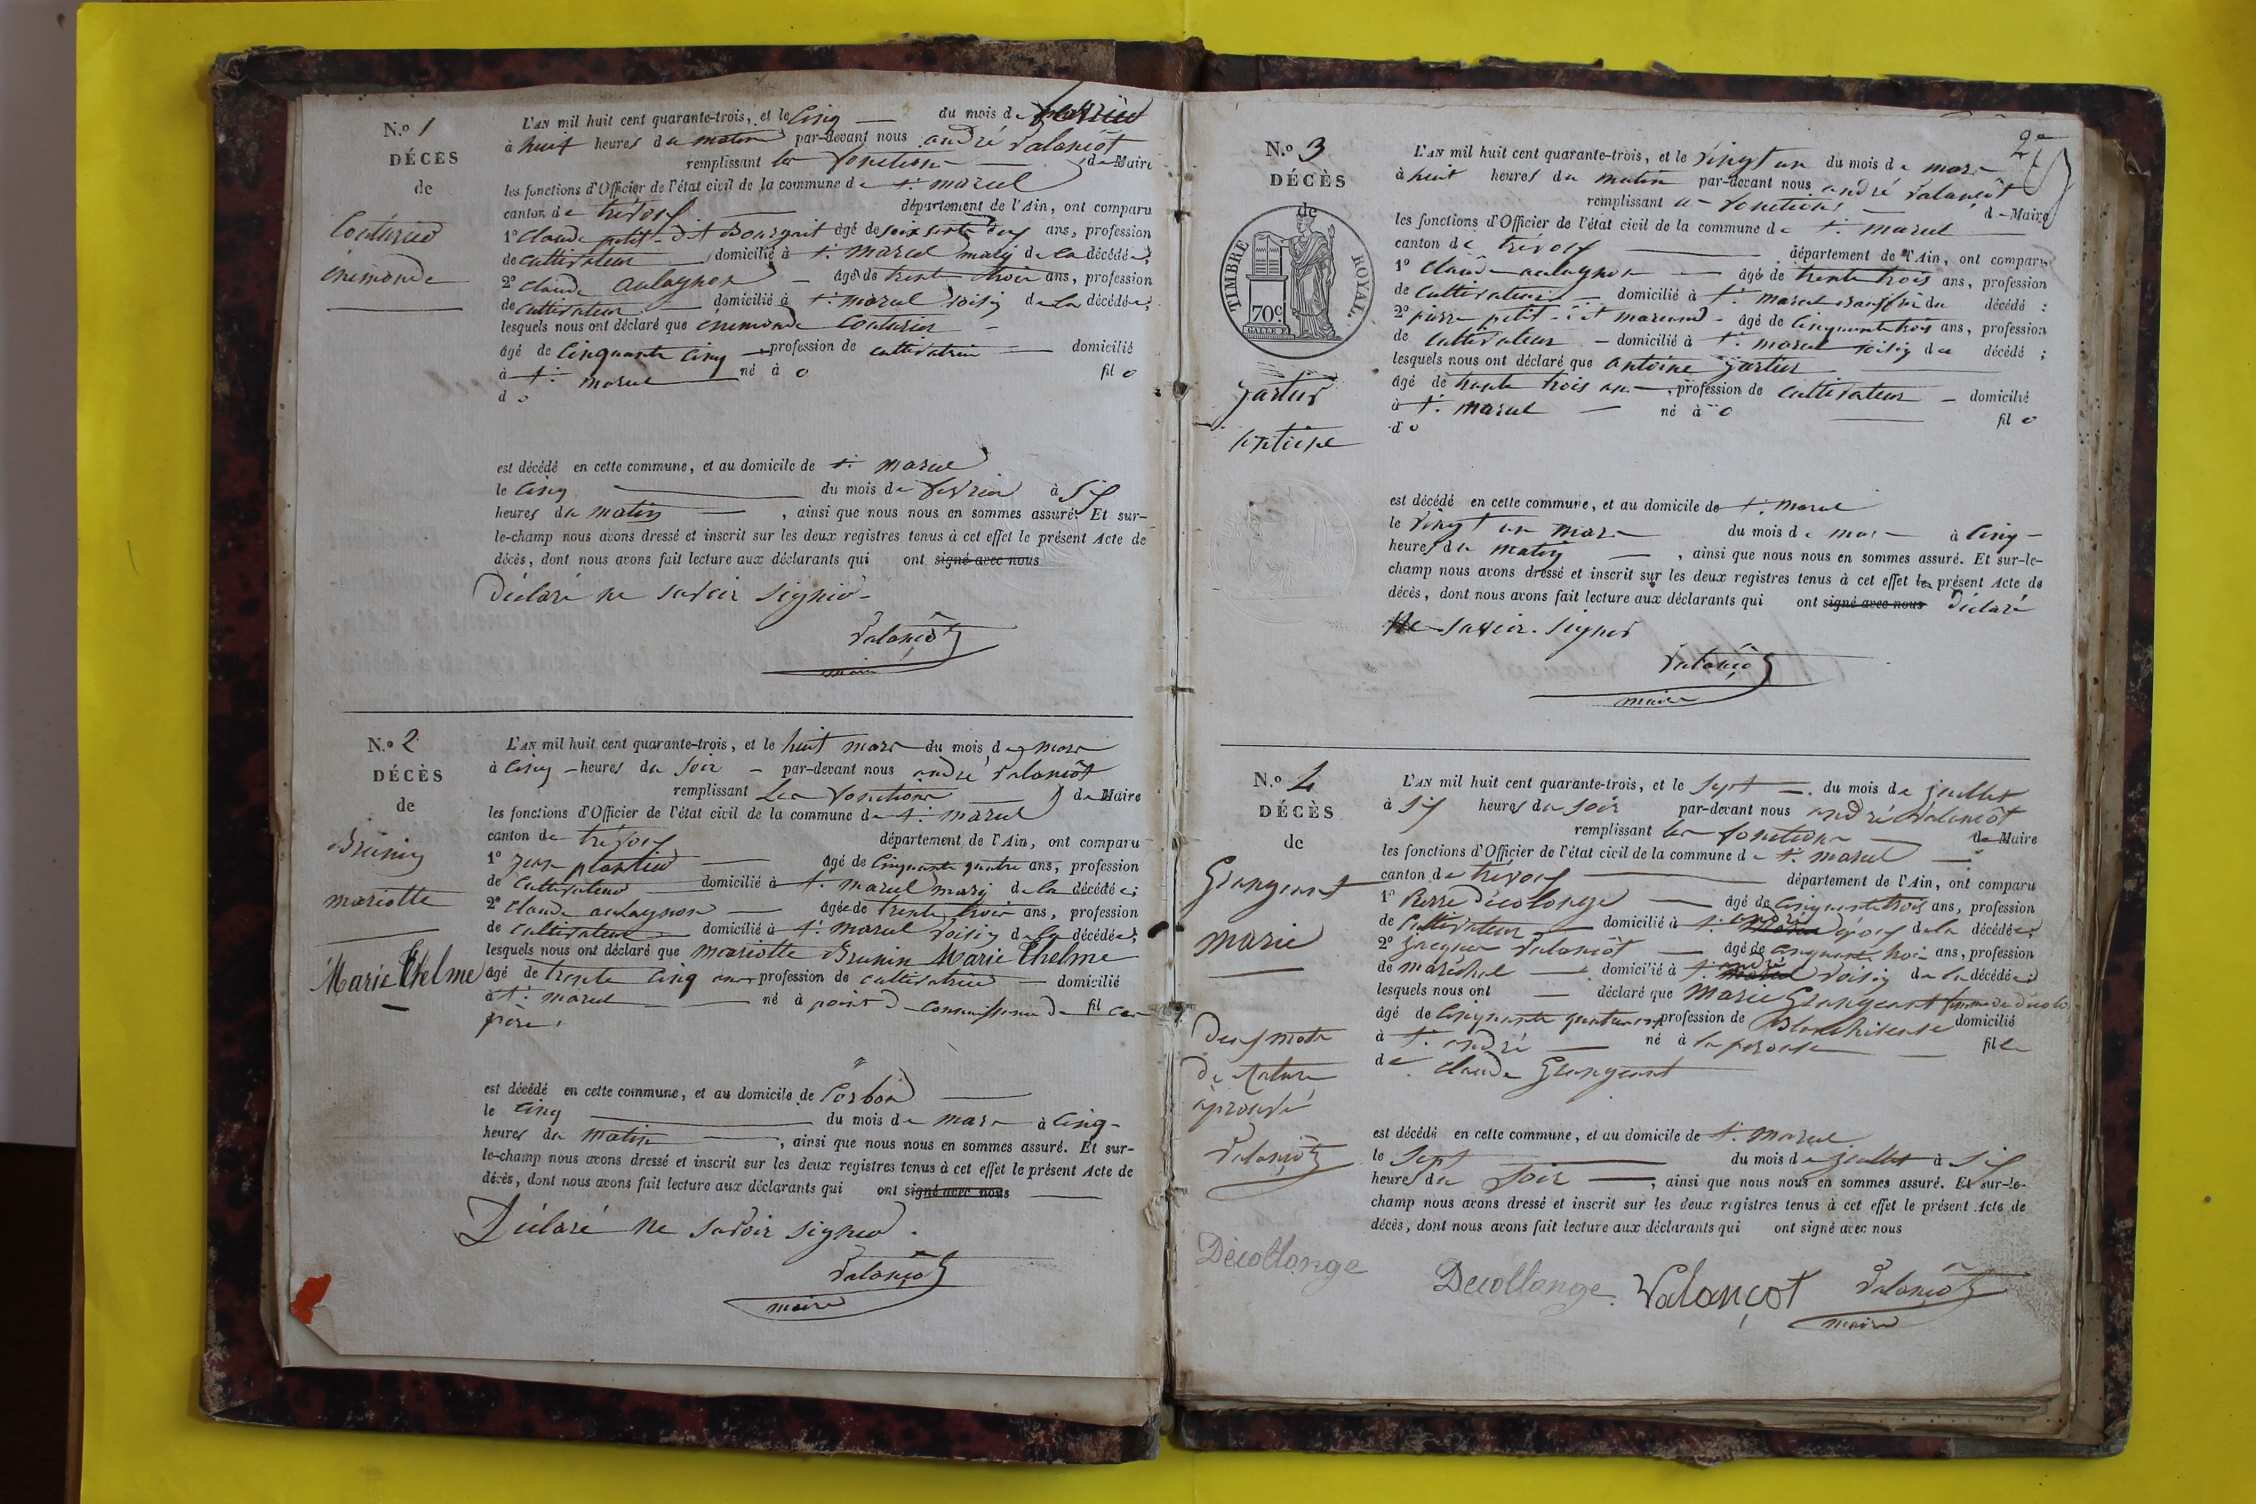 N.º 1
DÉCÈS
de
Couturier
énemonde
L'AN mil huit cent quarante-trois, et le cinq du mois de février
à huit heures du matin par-devant nous andré Valançot
remplissant les fonctions de Maire
les fonctions d'Officier de l'état civil de la commune de st. marcel
canton de trévoux département de l'Ain, ont comparu
1º Claude petit dit Bourgait âgé de soixante dix ans, profession
de cultivateur domicilié à st. marcel mary de la décédée;
2º claude aulagnon âgé de trente trois ans, profession
de cultivateur domicilié à st. marcel voisin de la décédée;
lesquels nous ont déclaré que énemonde Couturier
âgé de Cinquante Cinq profession de cultivatrice domicilié
à st. marcel né à o fil o
d o
est décédé en cette commune, et au domicile de st. marcel
le cinq du mois de février à six
heures du matin, ainsi que nous nous en sommes assuré. Et sur-
le-champ nous avons dressé et inscrit sur les deux registres tenus à cet effet le présent Acte de
décès, dont nous avons fait lecture aux déclarants qui ont signé avec nous
Déclaré ne savoir signer
Valançot
maire
N.º 2
DÉCÈS
de
Brunin
mariotte
Marie Thelme
L'AN mil huit cent quarante-trois, et le huit mars du mois de mars
à cinq heures du soir par-devant nous andré Valançot
remplissant les fonctions de Maire
les fonctions d'Officier de l'état civil de la commune de st. marcel
canton de trévoux département de l'Ain, ont comparu
1º jean plantier âgé de cinquante quatre ans, profession
de cultivateur domicilié à st. marcel mary de la décédée;
2º claude aulagnon âgé de trente trois ans, profession
de cultivateur domicilié à st. marcel voisin de la décédée;
lesquels nous ont déclaré que mariotte Brunin Marie Thelme
âgé de trente cinq ans profession de cultivatrice domicilié
à st. marcel né à point de connaissance de fil
père
est décédé en cette commune, et au domicile de
le cinq du mois de mars à cinq
heures du matin, ainsi que nous nous en sommes assuré. Et sur-
le-champ nous avons dressé et inscrit sur les deux registres tenus à cet effet le présent Acte de
décès, dont nous avons fait lecture aux déclarants qui ont signé avec nous
Déclaré ne savoir signer.
Valançot
maire
N.º 3
DÉCÈS
de
TIMBRE ROYAL.
70c.
Jartier
antoine
L'AN mil huit cent quarante-trois, et le vingt un du mois de mars
à huit heures du matin par-devant nous andré Valançot
remplissant les fonctions de Maire
les fonctions d'Officier de l'état civil de la commune de st. marcel
canton de trévoux département de l'Ain, ont comparu
1º claude aulagnon âgé de trente trois ans, profession
de cultivateur domicilié à st. marcel du décédé;
2º pierre petit dit marcand âgé de cinquante trois ans, profession
de cultivateur domicilié à st. marcel voisin du décédé;
lesquels nous ont déclaré que antoine Jartier
âgé de trente trois ans, profession de cultivateur domicilié
à st. marcel né à o fil o
d o
est décédé en cette commune, et au domicile de st. marcel
le vingt un mars du mois de mars à cinq
heures du matin, ainsi que nous nous en sommes assuré. Et sur-le-
champ nous avons dressé et inscrit sur les deux registres tenus à cet effet le présent Acte de
décès, dont nous avons fait lecture aux déclarants qui ont signé avec nous Déclaré
ne savoir signer
Valançot
maire
N.º 4
DÉCÈS
de
Grangeant
marie
deux mots
de rature
aprouvé
Valançot
L'AN mil huit cent quarante-trois, et le sept du mois de juillet
à six heures du soir par-devant nous andré Valançot
remplissant les fonctions de Maire
les fonctions d'Officier de l'état civil de la commune de st. marcel
canton de trévoux département de l'Ain, ont comparu
1º Pierre Décolonge âgé de cinquante trois ans, profession
de cultivateur domicilié à st. andré époux de la décédée;
2º Jacques Valançot âgé de cinquante trois ans, profession
de maréchal domicilié à st. andré voisin de la décédée;
lesquels nous ont déclaré que Marie Grangeant femme de
âgé de cinquante quatre ans profession de Blanchisseuse domicilié
à st. andré né à la fille
de claude Grangeant
est décédé en cette commune, et au domicile de st. marcel
le sept du mois de juillet à six
heures du soir, ainsi que nous nous en sommes assuré. Et sur-le-
champ nous avons dressé et inscrit sur les deux registres tenus à cet effet le présent Acte de
décès, dont nous avons fait lecture aux déclarants qui ont signé avec nous
Décollonge
Decollonge Valançot Valançot
maire